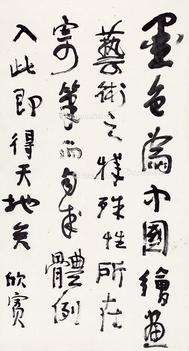 墨色為中國繪畫
藝術之特殊性所在
寄筆而自成體例
入此即得天地矣 欣賓